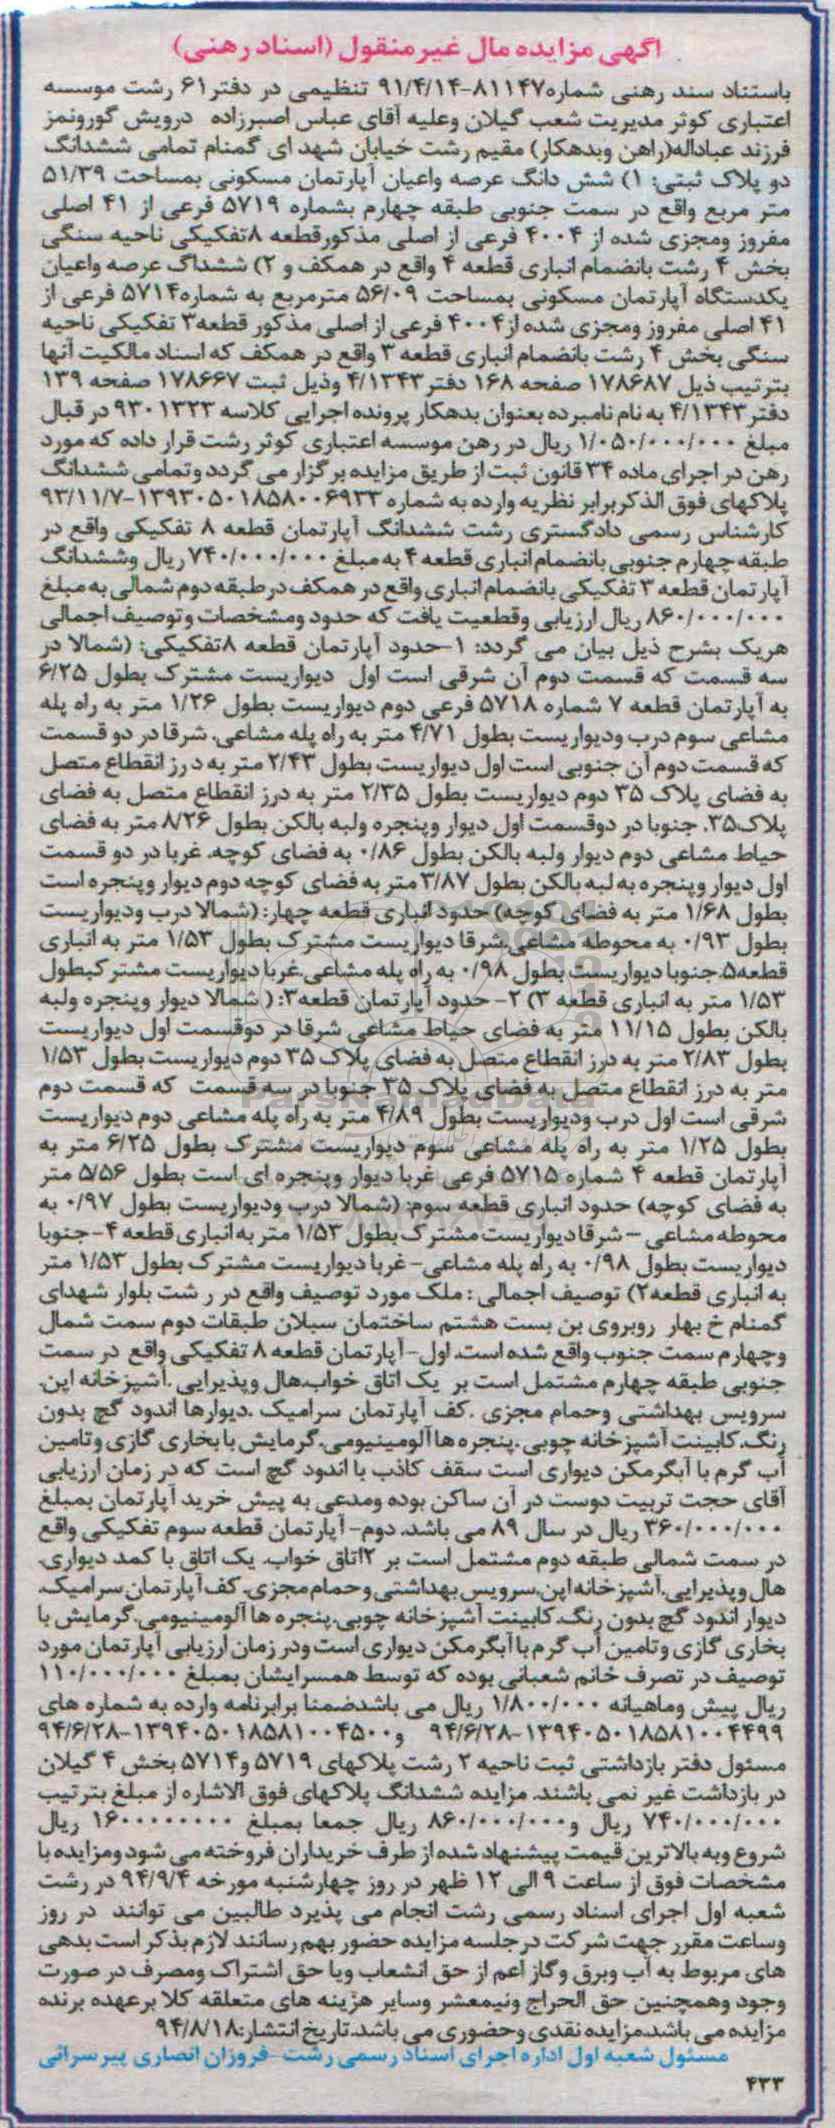 آگهی مزایده مال غیرمنقول (اسناد رهنی)
باستناد سند رهنی شماره ۸۱۱۴۷-۹۱/۴/۱۴ تنظیمی در دفتر ۶۱ رشت موسسه
اعتباری کوثر مدیریت شعب گیلان وعلیه آقای عباس اصبرزاده درویش گورونمز
فرزند عباداله(راهن وبدهکار) مقیم رشت خیابان شهد ای گمنام تمامی ششدانگ
دو پلاک ثبتی: ۱) شش دانگ عرصه واعیان آپارتمان مسکونی بمساحت ۵۱/۳۹
متر مربع واقع در سمت جنوبی طبقه چهارم بشماره ۵۷۱۹ فرعی از ۴۱ اصلی
مفروز ومجزی شده از ۴۰۰۴ فرعی از اصلی مذکورقطعه ۸تفکیکی ناحیه سنگی
بخش ۴ رشت بانضمام انباری قطعه ۴ واقع در همکف و ۲) ششداگ عرصه واعیان
یکدستگاه آپارتمان مسکونی بمساحت ۵۶/۰۹ مترمربع به شماره۵۷۱۴ فرعی از
۴۱ اصلی مفروز ومجزی شده از۴۰۰۴ فرعی از اصلی مذکور قطعه۳ تفکیکی ناحیه
سنگی بخش ۴ رشت بانضمام انباری قطعه ۳ واقع در همکف که اسناد مالکیت آنها
بترتیب ذیل ۱۷۸۶۸۷ صفحه ۱۶۸ دفتر ۴/۱۳۴۳ وذیل ثبت ۱۷۸۶۶۷ صفحه ۱۳۹
دفتر۴/۱۳۴۳ به نام نامبرده بعنوان بدهکار پرونده اجرایی کلاسه ۹۳۰۱۳۲۳ در قبال
مبلغ ۱/۰۵۰/۰۰۰/۰۰۰ ریال در رهن موسسه اعتباری کوثر رشت قرار داده که مورد
رهن در اجرای ماده ۳۴ قانون ثبت از طریق مزایده برگزار می گردد وتمامی ششدانگ
پلاکهای فوق الذکربرابر نظریه وارده به شماره ۱۳۹۳۰۵۰۱۸۵۸۰۰۶۹۳۳-۹۳/۱۱/۷
کارشناس رسمی دادگستری رشت ششدانگ آپارتمان قطعه ۸ تفکیکی واقع در
طبقه چهارم جنوبی بانضمام انباری قطعه ۴ به مبلغ ۷۴۰/۰۰۰/۰۰۰ ریال وششدانگ
آپارتمان قطعه ۳ تفکیکی بانضمام انباری واقع در همکف در طبقه دوم شمالی به مبلغ
۸۶۰/۰۰۰/۰۰۰ ریال ارزیابی وقطعیت یافت که حدود ومشخصات وتوصیف اجمالی
هریک بشرح ذیل بیان می گردد: ۱-حدود آپارتمان قطعه ۸تفکیکی: (شمالا در
سه قسمت که قسمت دوم آن شرقی است اول دیواریست مشترک بطول ۶/۲۵
به آپارتمان قطعه ۷ شماره ۵۷۱۸ فرعی دوم دیواریست بطول ۱/۲۶ متر به راه پله
مشاعی سوم درب ودیواریست بطول ۴/۷۱ متر به راه پله مشاعی. شرقا در دو قسمت
که قسمت دوم آن جنوبی است اول دیواریست بطول ۲/۴۳ متر به درز انقطاع متصل
به فضای پلاک ۳۵ دوم دیواریست بطول ۲/۳۵ متر به درز انقطاع متصل به فضای
پلاک۳۵. جنوبا در دوقسمت اول دیوار وپنجره ولبه بالکن بطول ۸/۲۶ متر به فضای
حیاط مشاعی دوم دیوار ولبه بالکن بطول ۰/۸۶ به فضای کوچه. غربا در دو قسمت
اول دیوار وپنجره به لبه بالکن بطول ۳/۸۷ متر به فضای کوچه دوم دیوار وپنجره است
بطول ۱/۶۸ متر به فضای کوچه) حدود انباری قطعه چهار: (شمالا درب ودیواریست
بطول ۰/۹۳ به محوطه مشاعی.شرقا دیواریست مشترک بطول ۱/۵۳ متر به انباری
قطعه۵.جنوبا دیواریست بطول ۰/۹۸ به راه پله مشاعی.غربا دیواریست مشترکبطول
۱/۵۳ متر به انباری قطعه ۳) ۲- حدود آپارتمان قطعه۳: ( شمالا دیوار وپنجره ولبه
بالکن بطول ۱۱/۱۵ متر به فضای حیاط مشاعی شرقا در دوقسمت اول دیواریست
بطول ۲/۸۳ متر به درز انقطاع متصل به فضای پلاک ۳۵ دوم دیواریست بطول ۱/۵۳
متر به درز انقطاع متصل به فضای پلاک ۳۵ جنوبا در سه قسمت که قسمت دوم
شرقی است اول درب ودیواریست بطول ۴/۸۹ متر به راه پله مشاعی دوم دیواریست
بطول ۱/۲۵ متر به راه پله مشاعی سوم دیواریست مشترک بطول ۶/۲۵ متر به
آپارتمان قطعه ۴ شماره ۵۷۱۵ فرعی غربا دیوار وپنجره ای است بطول ۵/۵۶ متر
به فضای کوچه) حدود انباری قطعه سوم: (شمالا درب ودیواریست بطول ۰/۹۷ به
محوطه مشاعی – شرقا دیواریست مشترک بطول ۱/۵۳ متر به انباری قطعه ۴- جنوبا
دیواریست بطول ۰/۹۸ به راه پله مشاعی- غربا دیواریست مشترک بطول ۱/۵۳ متر
به انباری قطعه۲) توصیف اجمالی : ملک مورد توصیف واقع در ر شت بلوار شهدای
گمنام خ بهار روبروی بن بست هشتم ساختمان سبلان طبقات دوم سمت شمال
وچهارم سمت جنوب واقع شده است. اول-آپارتمان قطعه ۸ تفکیکی واقع در سمت
جنوبی طبقه چهارم مشتمل است بر یک اتاق خواب.هال وپذیرایی .آشپزخانه اپن.
سرویس بهداشتی وحمام مجزی .کف آپارتمان سرامیک .دیوارها اندود گچ بدون
رنگ.کابینت آشپزخانه چوبی .پنجره ها آلومینیومی.گرمایش با بخاری گازی وتامین
آب گرم با آبگرمکن دیواری است سقف کاذب با اندود گچ است که در زمان ارزیابی
آقای حجت تربیت دوست در آن ساکن بوده ومدعی به پیش خرید آپارتمان بمبلغ
۳۶۰/۰۰۰/۰۰۰ ریال در سال ۸۹ می باشد. دوم- آپارتمان قطعه سوم تفکیکی واقع
در سمت شمالی طبقه دوم مشتمل است بر ۲اتاق خواب. یک اتاق با کمد دیواری.
هال وپذیرایی.آشپزخانه اپن.سرویس بهداشتی وحمام مجزی. کف آپارتمان سرامیک.
دیوار اندود گچ بدون رنگ.کابینت آشپزخانه چوبی.پنجره ها آلومینیومی.گرمایش با
بخاری گازی وتامین آب گرم با آبگرمکن دیواری است ودر زمان ارزیابی آپارتمان مورد
توصیف در تصرف خانم شعبانی بوده که توسط همسرایشان بمبلغ ۱۱۰/۰۰۰/۰۰۰
ریال پیش وماهیانه ۱/۸۰۰/۰۰۰ ریال می باشدضمنا برابرنامه وارده به شماره های
۱۳۹۴۰۵۰۱۸۵۸۱۰۰۴۴۹۹-۹۴/۶/۲۸ و۱۳۹۴۰۵۰۱۸۵۸۱۰۰۴۵۰۰-۹۴/۶/۲۸
مسئول دفتر بازداشتی ثبت ناحیه ۲ رشت پلاکهای ۵۷۱۹ و۵۷۱۴ بخش ۴ گیلان
در بازداشت غیر نمی باشند. مزایده ششدانگ پلاکهای فوق الاشاره از مبلغ بترتیب
۷۴۰/۰۰۰/۰۰۰ ریال و۸۶۰/۰۰۰/۰۰۰ ریال جمعا بمبلغ ۱۶۰۰۰۰۰۰۰۰ ریال
شروع وبه بالاترین قیمت پیشنهاد شده از طرف خریداران فروخته می شود ومزایده با
مشخصات فوق از ساعت ۹ الی ۱۲ ظهر در روز چهارشنبه مورخه ۹۴/۹/۴ در رشت
شعبه اول اجرای اسناد رسمی رشت انجام می پذیرد طالبین می توانند در روز
وساعت مقرر جهت شرکت در جلسه مزایده حضور بهم رسانند لازم بذکر است بدهی
های مربوط به آب وبرق وگاز اعم از حق انشعاب ویا حق اشتراک ومصرف در صورت
وجود وهمچنین حق الحراج ونیمعشر وسایر هزینه های متعلقه کلا برعهده برنده
مزایده می باشد.مزایده نقدی وحضوری می باشد.تاریخ انتشار:۹۴/۸/۱۸
مسئول شعبه اول اداره اجرای اسناد رسمی رشت-فروزان انصاری پیرسرائی
۴۳۳